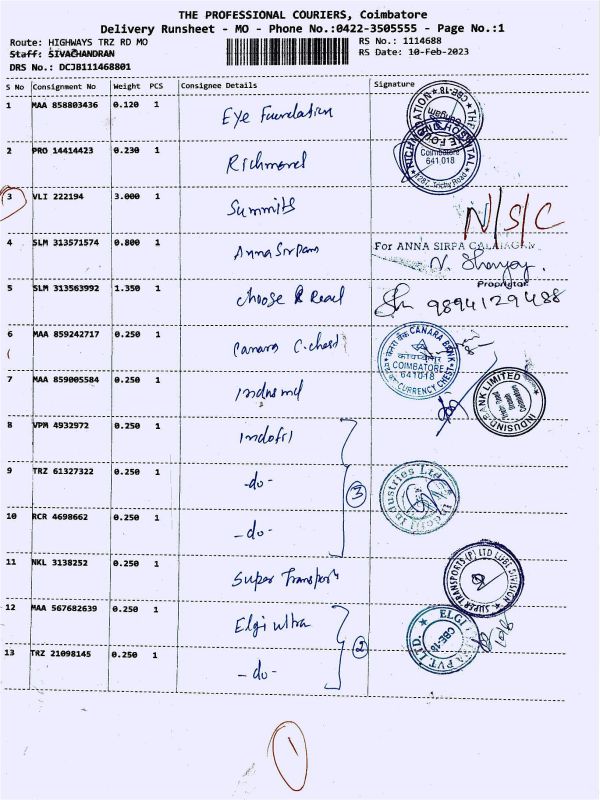 THE PROFESSIONAL COURIERS, Coimbatore
Delivery Runsheet - MO - Phone No.:0422-3505555 - Page No.:1
Route: HIGHWAYS TRZ RD MO
RS No.: 1114688
Staff: SIVACHANDRAN
RS Date: 10-Feb-2023
DRS No.: DCJB111468801
S No Consignment No Weight PCS Consignee Details Signature
1 MAA 858803436 0.120 1 Eye Foundation
2 PRO 14414423 0.230 1 Richmond
Coimbatore
641 018
3 VLI 222194 3.000 1 Summits N/S/C
4 SLM 313571574 0.800 1 Anna Sirpam
For ANNA SIRPA KALAIAGAM
Proprietor
5 SLM 313563992 1.350 1 choose & Read 9894129488
6 MAA 859242717 0.250 1 Canara C.chest
CANARA BANK
COIMBATORE
641018
CURRENCY CHEST
7 MAA 859005584 0.250 1 Indusind
INDUSIND BANK LIMITED
8 VPM 4932972 0.250 1 Indofil
9 TRZ 61327322 0.250 1 -do- 3
Industries Ltd
10 RCR 4698662 0.250 1 -do-
11 NKL 3138252 0.250 1 Super Transports
SUPER TRANSPORTS (P) LTD LUBE DIVISION
12 MAA 567682639 0.250 1 Elgi ultra
ELGI
PVT. LTD.
CBE-18
13 TRZ 21098145 0.250 1 -do- 2
1